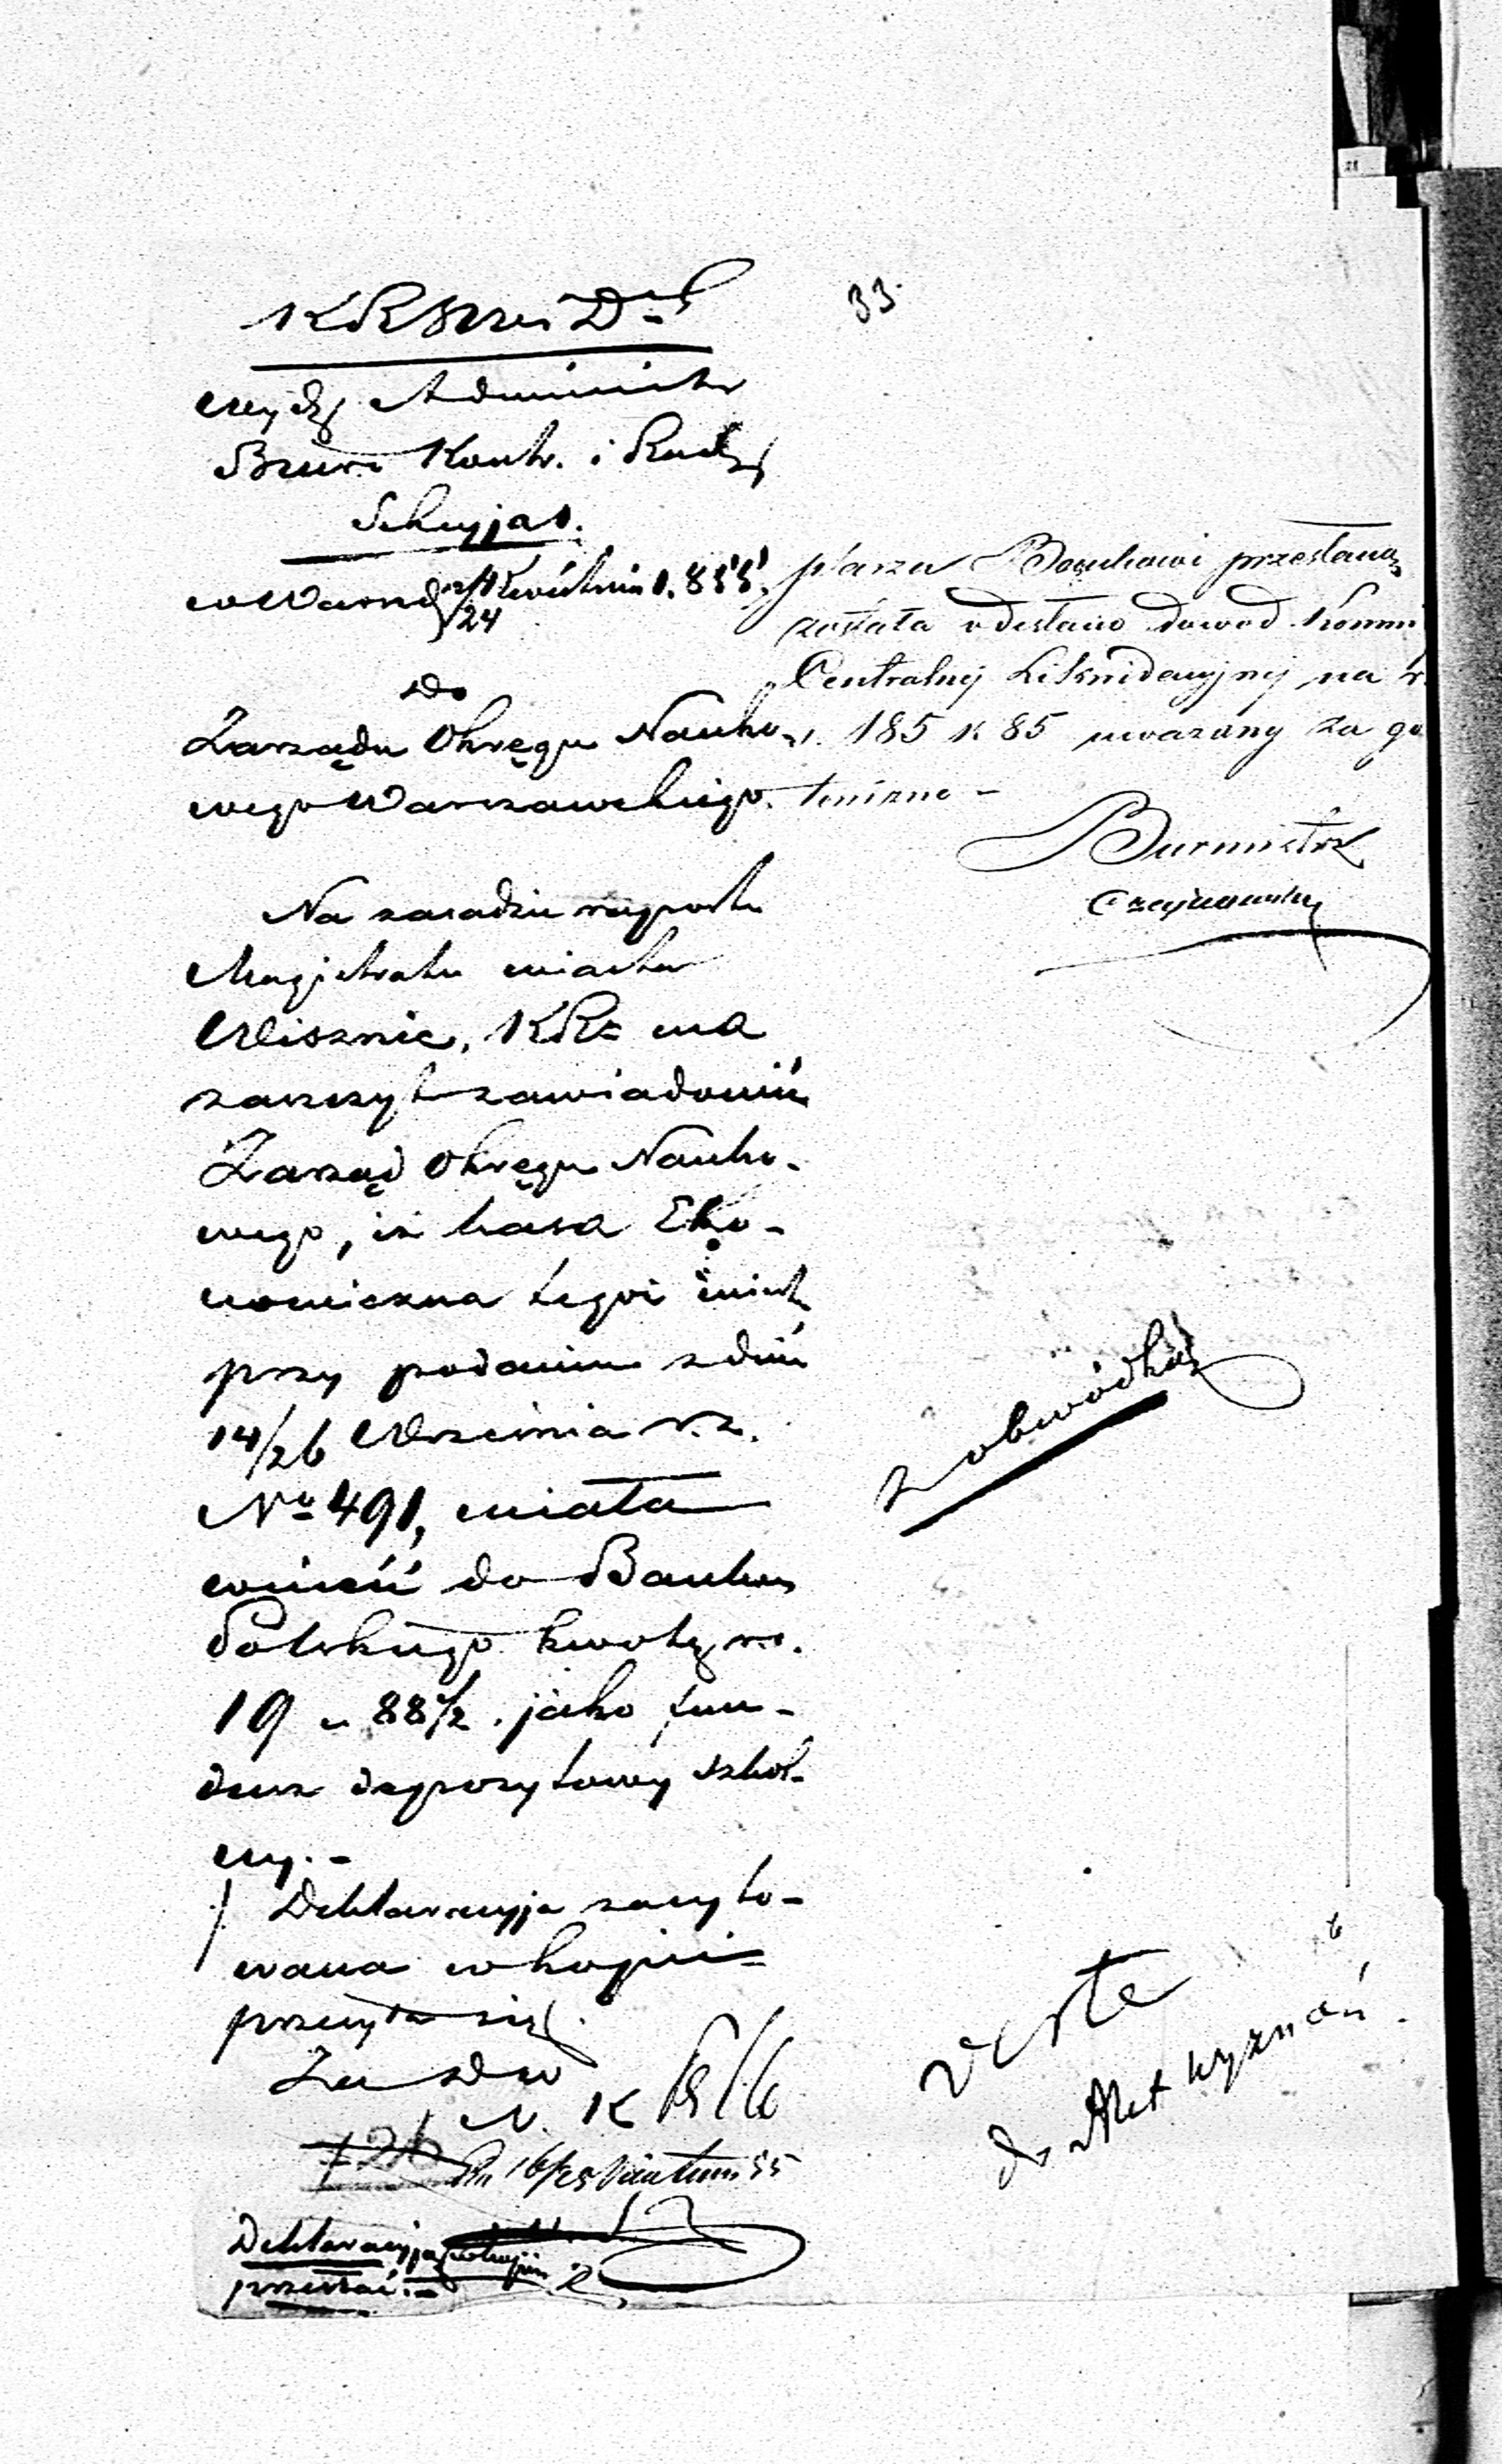 33.
KRSWiD
Wydz. Administr
Biuro Kontr. i Rach
Sekcyja 1.
w Warsz 12/24 Kwietnia 1.855.
Do
Zarządu Okręgu Nauko-
wego Warszawskiego.
Na zasadzie raportu
Magistratu miasta
Wisznic, KR= ma
zaszczyt zawiadomić
Zarząd Okręgu Nauko-
wego, iż kassa Eko-
nomiczna tegoż miasta
przy podaniu z dnia
14/26 Września r.z.
No 491, miała
wnieść do Banku
Polskiego kwotę rs.
19 - 88 1/2. jako fun-
dusz depozytowy szkol-
ny.-
Deklaracyja zacyto-
wana w kopii=
przesyła się.
Za Dw
N. K
16/28 Kwietnia 55
Deklaracyja w kopii
przesłać.-
płarzu Bankowi przesłaną
została odesłano dowód Kommi
Centralnej Likwidacyjnej na
185 k 85 uważany za go
towiznę -
Burmistrz
z obwódką
do Akt wyznań.